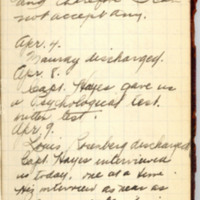 and therefore I can
not accept any.
Apr. 4.
Maury discharged.
Apr. 8.
Capt. Hayes gave us
a Psychological test.
Apr. 9.
Louis Rosenberg discharged
Capt Hayes interviewed
us today, one at a time.
His interview as near as